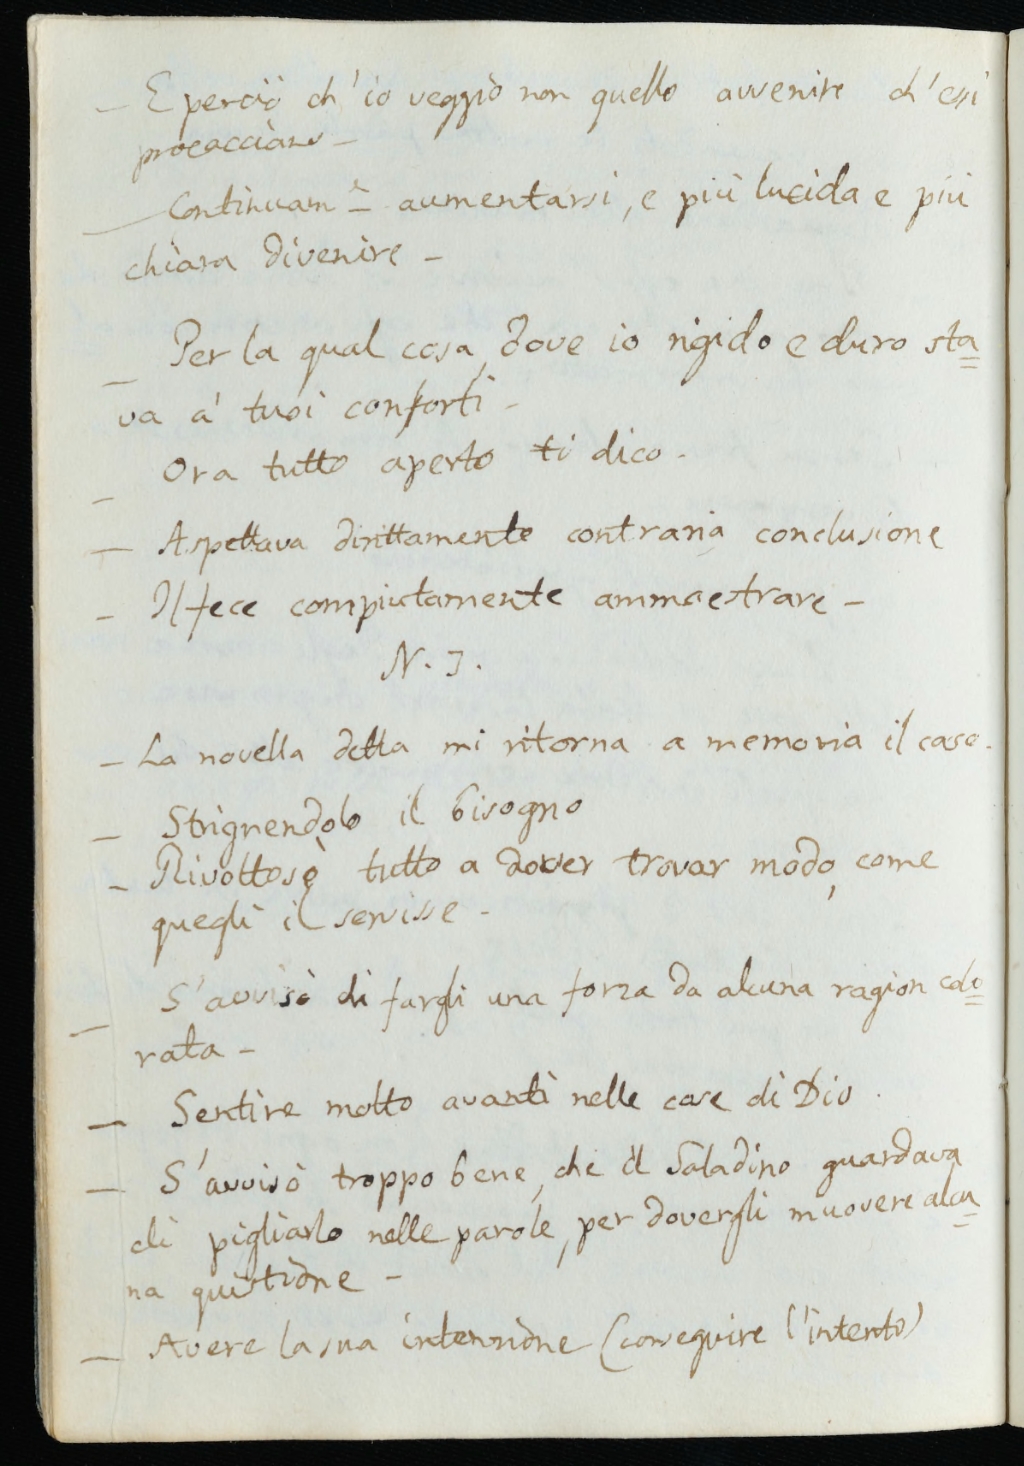 — E perciò ch'io veggio non quello avvenire ch'essi
procacciano —
— Continuam.e aumentarsi, e più lucida e più
chiara divenire —
— Per la qual cosa, dove io rigido e duro sta=
va a' tuoi conforti —
— Ora tutto aperto ti dico.
— Aspettava dirittamente contraria conclusione
— Il fece compiutamente ammaestrare —
N. 3.
— La novella detta mi ritorna a memoria il caso.
— Strignendolo il bisogno
— Rivoltosi tutto a dover trovar modo, come
quegli il servisse —
— S'avvisò di fargli una forza da alcuna ragion colo=
rata —
— Sentire molto avanti nelle cose di Dio.
— S'avvisò troppo bene, che il Saladino guardava
di pigliarlo nelle parole, per dovergli muovere alcu=
na quistione —
— Avere la sua intenzione (conseguire l'intento)